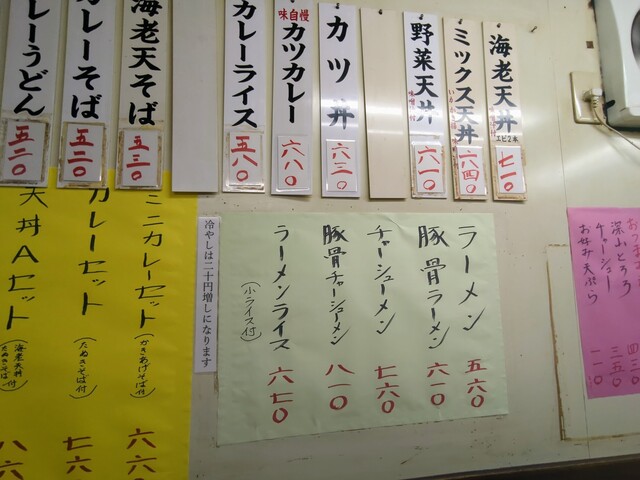 海老天丼
エビ2本
七一〇
ミックス天丼
六四〇
野菜天丼
味噌汁付
六一〇
カツ丼
六三〇
味自慢
カツカレー
六八〇
カレーライス
五八〇
海老天そば
五三〇
カレーそば
五二〇
レーうどん
五二〇
ラーメン
五六〇
豚骨ラーメン
六一〇
チャーシューメン
七六〇
豚骨チャーシューメン
八一〇
ラーメンライス
(小ライス付)
六七〇
冷やしは二十円増しになります
ミニカレーセット
(かきあげそば付)
六六
カレーセット
(たぬきそば付)
七六
天丼Aセット
海老天丼
たぬきそば付
八六
深山とろろ
チャーシュー
三五〇
お好み天ぷら
一一〇